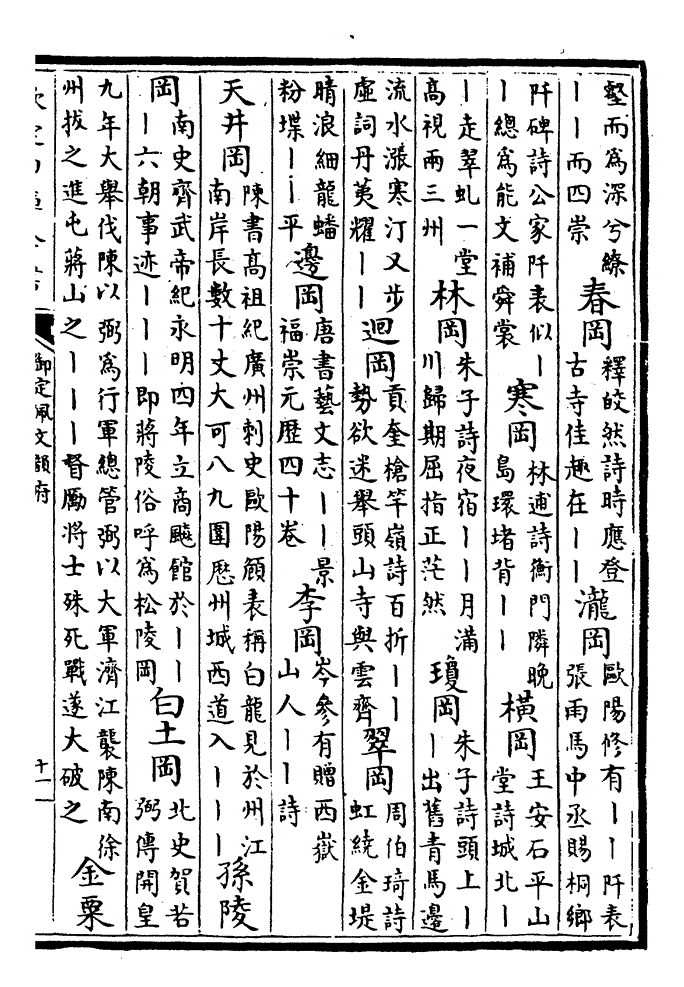 壑而爲深兮繚
丨丨而四崇
春岡
釋皎然詩時應登
古寺佳趣在丨丨
瀧岡
歐陽修有丨丨阡表
張雨馬中丞賜桐鄉
阡碑詩公家阡表似丨
丨總爲能文補舜裳
寒岡
林逋詩衡門隣晚
島環堵背丨丨
橫岡
王安石平山
堂詩城北丨
丨走翠虬一堂
高視兩三州
林岡
朱子詩夜宿丨丨月滿
川歸期屈指正茫然
瓊岡
朱子詩頭上丨
丨出舊青馬邊
流水漲寒汀又步
虛詞丹荑耀丨丨
迴岡
貢奎槍竿嶺詩百折丨丨
勢欲迷舉頭山寺與雲齊
翠岡
周伯琦詩
虹繞金堤
晴浪細龍蟠
粉堞丨丨平
邊岡
唐書藝文志丨丨景
福崇元歴四十卷
李岡
岑參有贈西嶽
山人丨丨詩
天井岡
陳書高祖紀廣州刺史歐陽頠表稱白龍見於州江
南岸長數十丈大可八九圍歴州城西道入丨丨丨
孫陵
岡
南史齊武帝紀永明四年立商飈館於丨丨
丨六朝事迹丨丨丨即蔣陵俗呼爲松陵岡
白土岡
北史賀若
弼傳開皇
九年大舉伐陳以弼爲行軍總管弼以大軍濟江襲陳南徐
州拔之進屯蔣山之丨丨丨督厲將士殊死戰遂大破之
金粟
欽定四庫全書
御定佩文韻府
十一